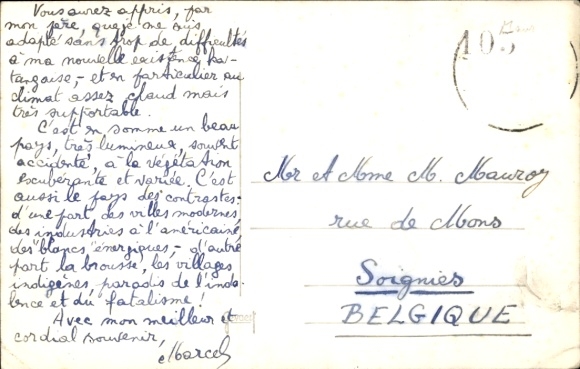 Vous aurez appris, par
mon père, que je me suis
adapté sans trop de difficultés
à ma nouvelle existence ka-
tangaise, - et en particulier au
climat assez chaud mais
très supportable.
C'est en somme un beau
pays, très lumineux, souvent
accidenté, à la végétation
exubérante et variée. C'est
aussi le pays des contrastes:
d'une part des villes modernes,
des industries à l'américaine,
des "blancs" énergiques, - d'autre
part la brousse, les villages
indigènes, paradis de l'indo-
lence et du fatalisme!
Avec mon meilleur et
cordial souvenir,
Marcel
105
Mr et Mme M. Mauroy
rue de Mons
Soignies
BELGIQUE